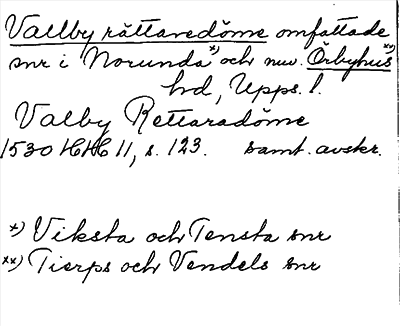 Vallby rättaredöme omfattade
snr i Norunda *) och nuv. Örbyhus **)
hd, Upps. l.
Valby Rettaradöme
1530 HH 11, s. 123. samt. avskr.
*) Viksta och Tensta snr
**) Tierps och Vendels snr